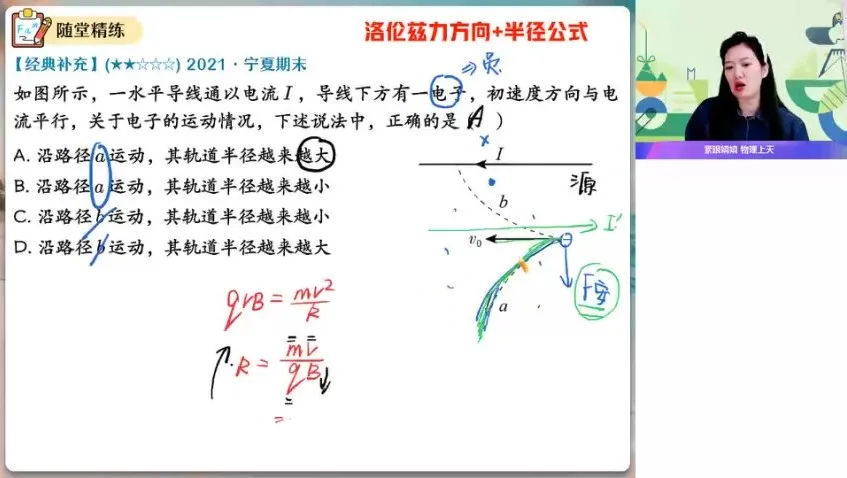 随堂精练
洛伦兹力方向+半径公式
【经典补充】(★★☆☆☆) 2021·宁夏期末
如图所示，一水平导线通以电流 I，导线下方有一电子，初速度方向与电
流平行，关于电子的运动情况，下述说法中，正确的是（A）
A. 沿路径 a 运动，其轨道半径越来越大
B. 沿路径 a 运动，其轨道半径越来越小
C. 沿路径 b 运动，其轨道半径越来越小
D. 沿路径 b 运动，其轨道半径越来越大
I
源
b
I'
v₀
F安
a
qvB = mv²/R
R = mv/qB
=
紧跟娟娟 物理上天